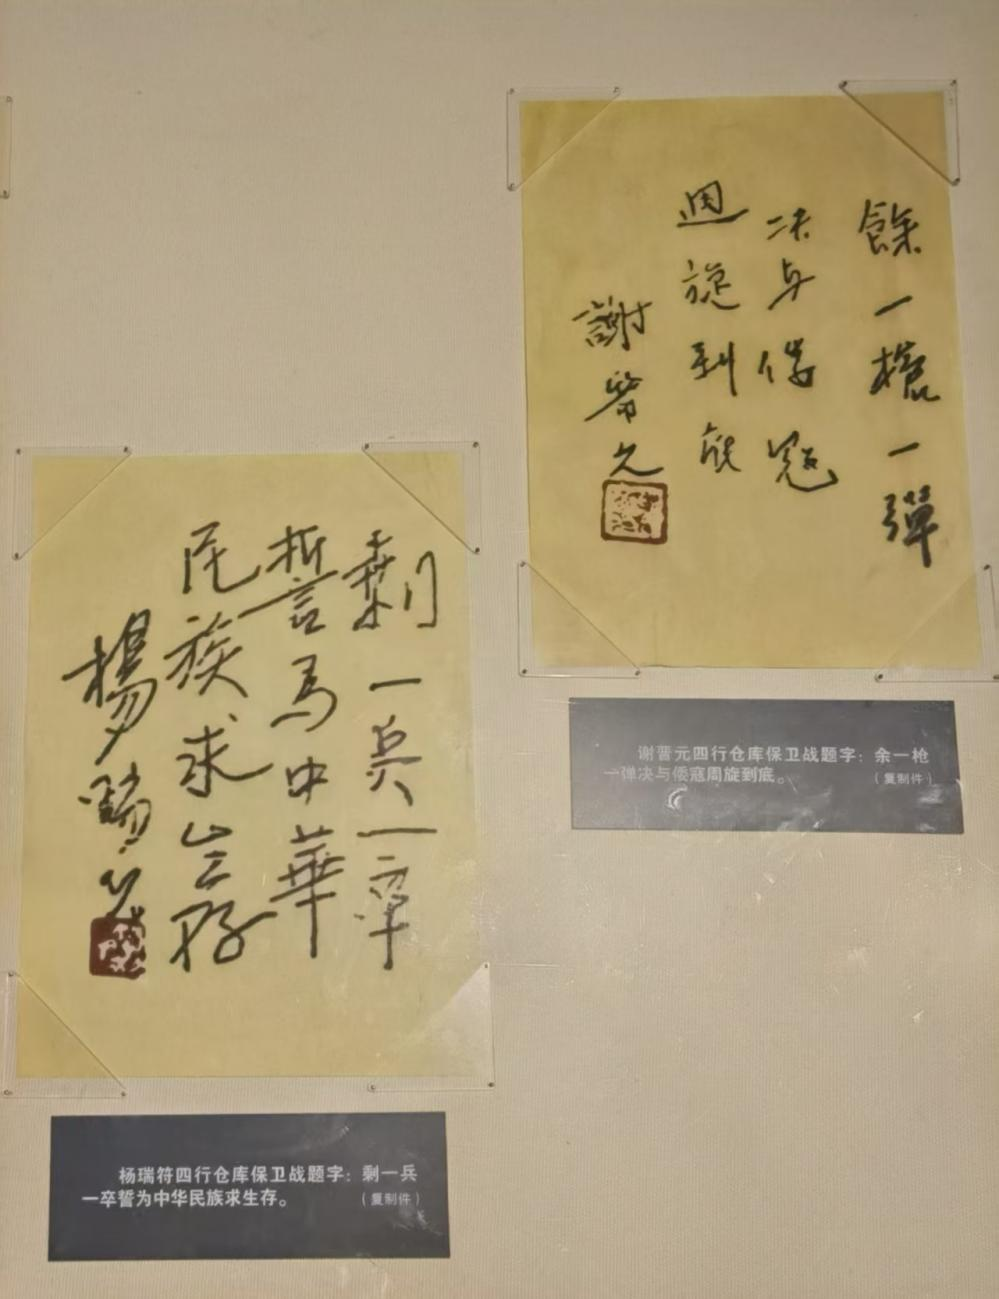 餘一槍一彈
决与倭寇
週旋到底
謝晋元
谢晋元四行仓库保卫战题字：余一枪
一弹决与倭寇周旋到底。（复制件）
剩一兵一卒
誓為中華
民族求生存
楊瑞符
杨瑞符四行仓库保卫战题字：剩一兵
一卒誓为中华民族求生存。（复制件）